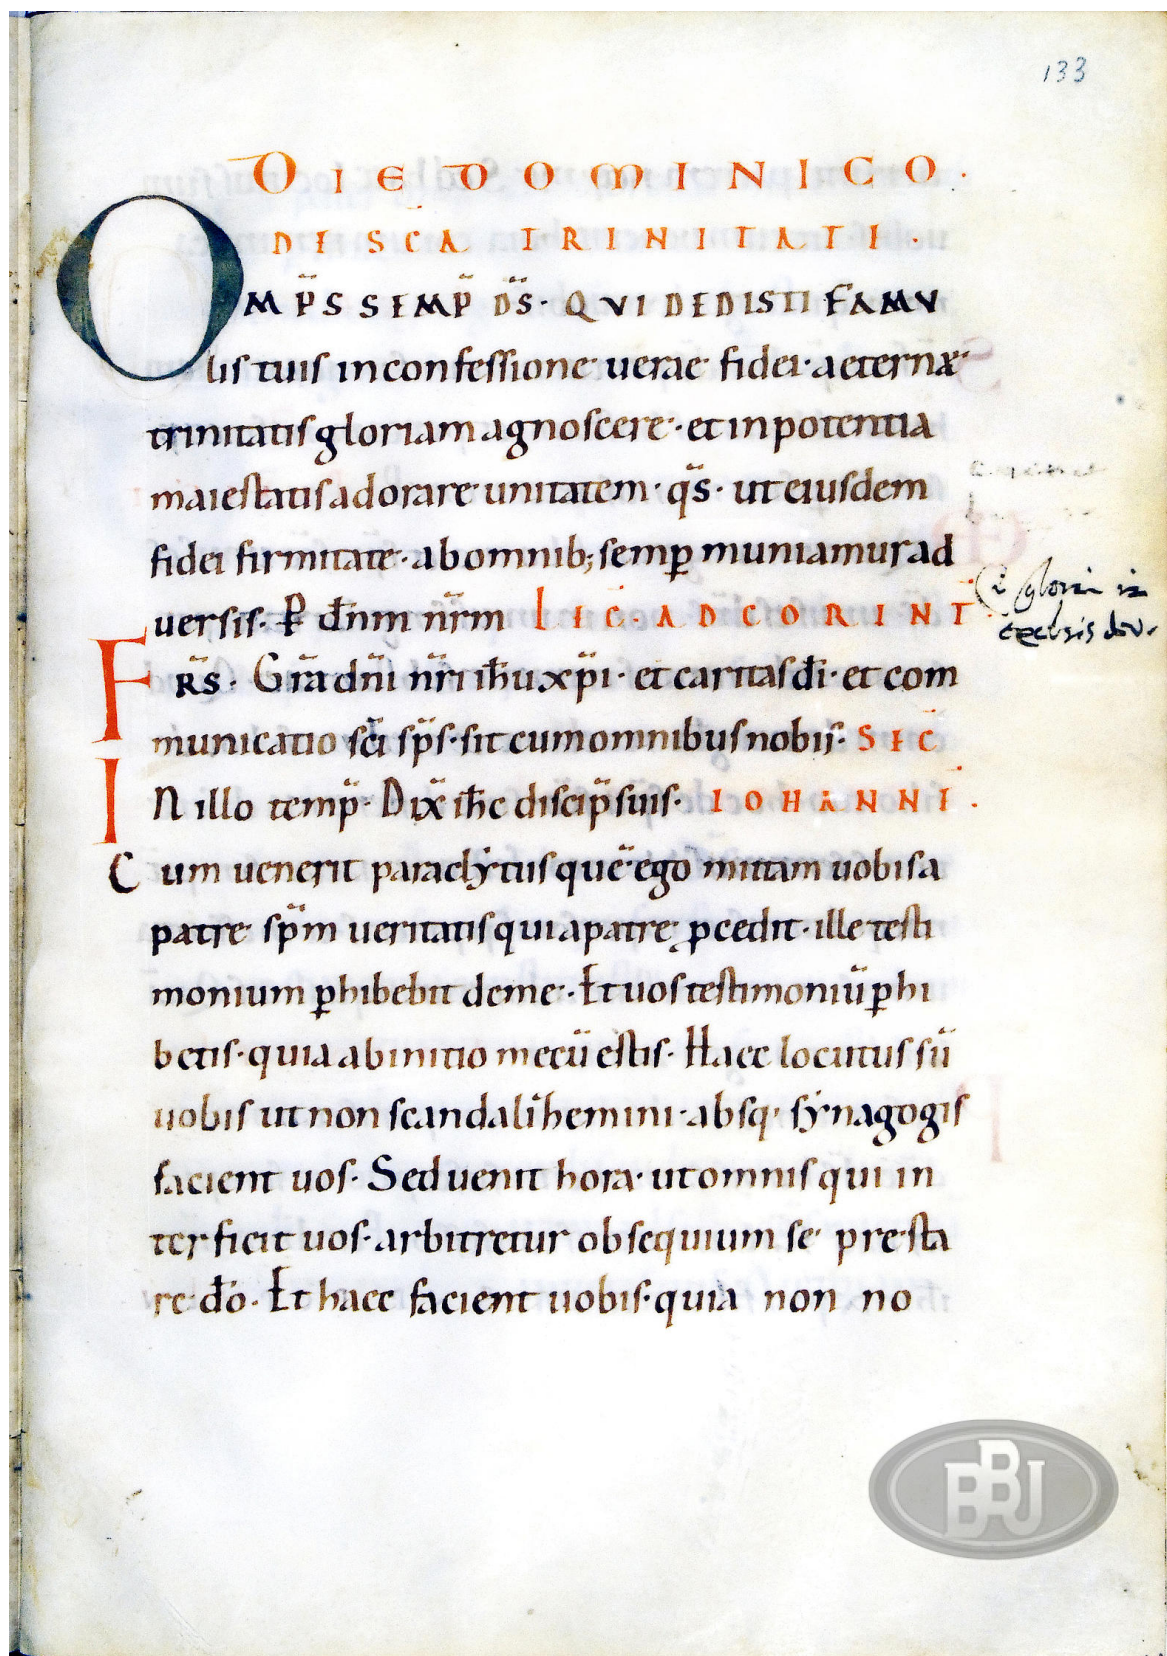 133
DIE DOMINICO.
DE SCA TRINITATE.
OMP̄S SEMP̄ D̄S· QVI DEDISTI FAMV
lis tuis in confessione verae fidei· aeternæ
trinitatis gloriam agnoscere· et in potentia
maiestatis adorare unitatem· q̄s· ut eiusdem
fidei firmitate· ab omnib; semꝑ muniamur ad
versis· P̄ dn̄m nr̄m LEC̄· AD CORINT
FR̄S· Gr̄a dn̄i nr̄i ih̄u xp̄i· et caritas dī· et com
municatio sc̄i sp̄s· sit cum omnibus nobis· SEC̄
IN illo temp̄· Dix̄ ih̄c discip̄ suis· IOHANNE.
Cum uenerit paraclẏtus quē ego mittam uobis a
patre sp̄m ueritatis qui a patre ꝓcedit· ille testi
monium ꝑhibebit de me· Et uos testimoniū ꝑhi
betis· quia ab initio mecū estis· Haec locutus sū
uobis ut non scandalihemini· absq· sẏnagogis
facient uos· Sed uenit hora· ut omnis qui in
terficit uos· arbitretur obsequium se presta
re dō· Et haec facient uobis· quia non no
gloria in
excelsis deo.
BBJ